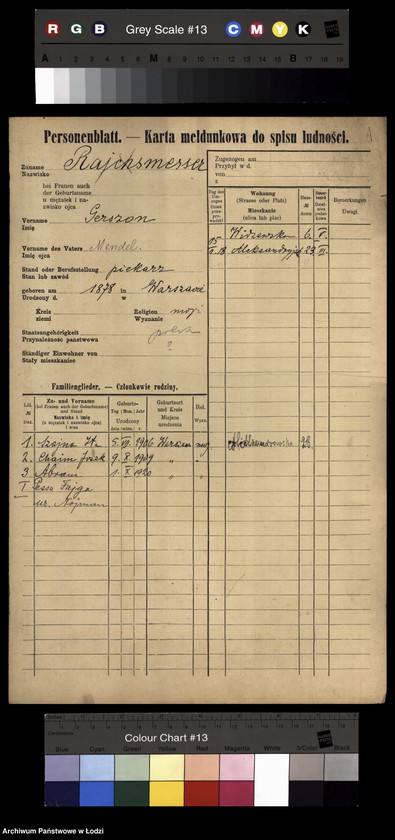 R G B Grey Scale #13 C M Y K
A 1 2 3 4 5 6 M 8 9 10 11 12 13 14 15 B 17 18 19
Personenblatt. — Karta meldunkowa do spisu ludności.
Zuname Rajchsmesser
Nazwisko
bei Frauen auch
der Geburtsname
u mężatek i na-
zwisko ojca
Vorname Gerszon
Imię
Vorname des Vaters Mendel.
Imię ojca
Stand oder Berufsstellung piekarz
Stan lub zawód
geboren am 1878 in Warszawie
Urodzony d. w
Kreis Religion mojż
ziemi Wyznanie
Staatsangehörigkeit polsk
Przynależność państwowa ?
Ständiger Einwohner von
Stały mieszkaniec
Zugezogen am
Przybył w d.
von
z
Tag des Um-
zuges
Wohnung
(Strasse oder Platz)
Mieszkanie
(ulica lub plac)
Haus-
№
domu
Bemerkungen
Uwagi
Widzewska 6. V.
15
18 Aleksandryjs 23 VI.
Familienglieder. — Członkowie rodziny.
Zu- und Vorname
(bei Frauen auch der Geburtsname)
und Stand
Nazwisko i imię
(u mężatek i nazwisko ojca)
i stan
Geburts-
Tag | Mon. | Jahr
Urodzony
dnia | mies. | r.
Geburtsort
und Kreis
Miejsce
urodzenia
Rel.
Wyzn.
1. 5. VII. 1906 Warszawa moj. Aleksandrowska 23.
2. Chaim Josek 9. X. 1909 " "
3. Abram 1. X 1920 " "
I Pessa Fajga
ur. Nojman
Colour Chart #13
Blue Cyan Green Yellow Red Magenta White 3/Color Black
Archiwum Państwowe w Łodzi